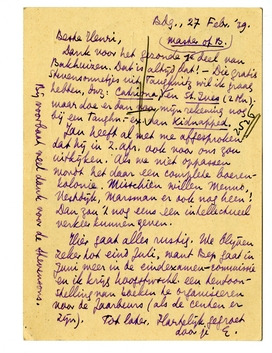 Bdg., 27 Febr. '39.
Beste Henri,
master of B.
Dank voor het gezonde je deel van
Bakhuizen. Dat is altijd dat! — De gratis
Stevensonnetjes uit Tauchnitz wil ik graag
hebben, bv: Catriona en St. Ives (2 dln).
maar doe er dan op mijn rekening nog
bij een Tauchn.-ex. van Kidnapped.
Jan heeft al met me afgesproken
dat hij in 2. apr. ook voor ons zou
uitkijken. Als we niet oppassen
wordt het daar een complete boeren-
kolonie. Misschien willen Menno,
Marsman er ook nog heen!
Dan zou 't nog eens een intellectueel
verkeer kunnen geven.
Hier gaat alles rustig. We blijven
zeker tot eind Juli, want Bep gaat in
Juni meer in de eindexamen-commissie
en ik krijg hoofdvracht een tentoon-
stelling van boeken te organiseren
voor de Jaarbeurs (als de centen er
zijn). Tot later. Hartelijk gegroet
door je E.
Bij voorbaat veel dank voor de Stevensons.